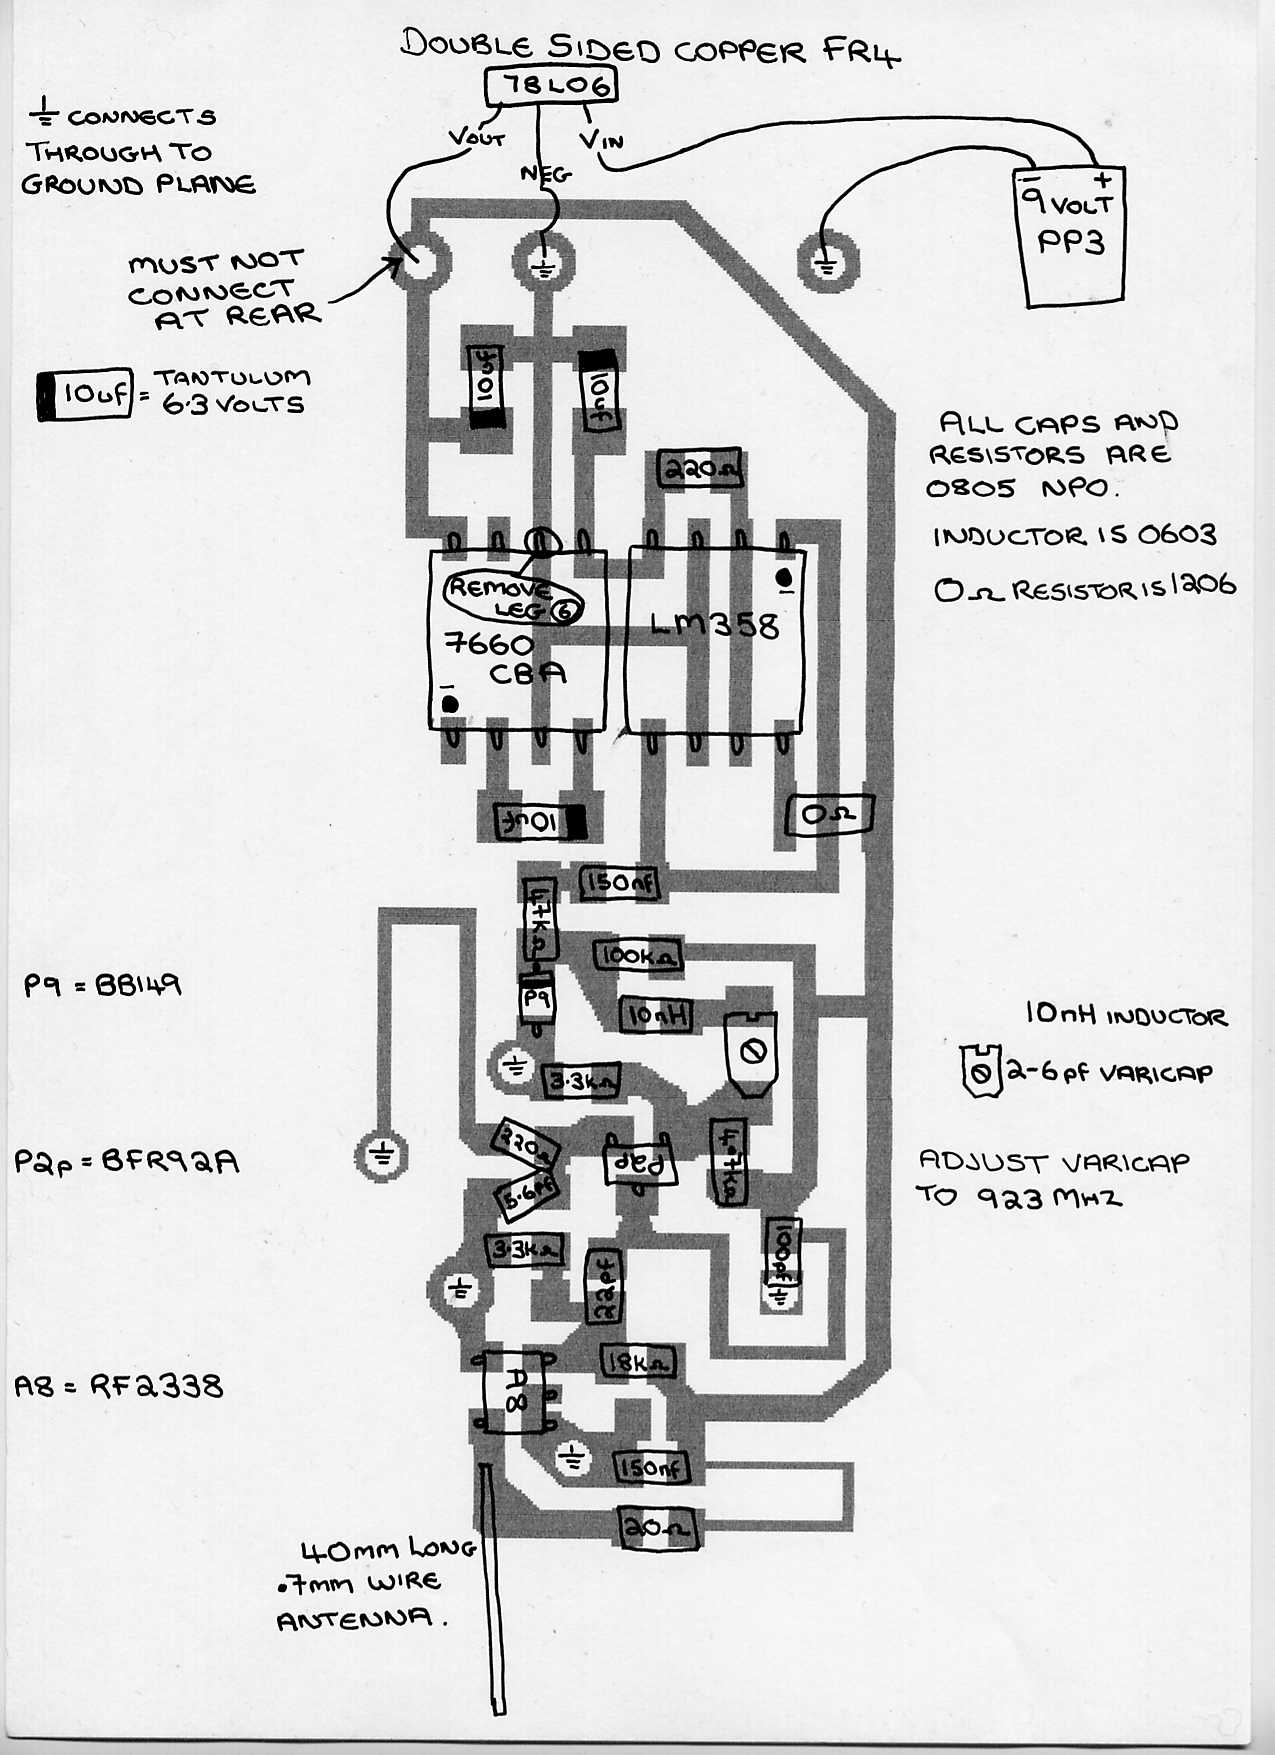 DOUBLE SIDED COPPER FR4
78L06
⏚ CONNECTS
THROUGH TO
GROUND PLANE
VOUT
NEG
VIN
- +
9 VOLT
PP3
MUST NOT
CONNECT
AT REAR
10uf = TANTULUM
6.3 VOLTS
10uf
10uf
ALL CAPS AND
RESISTORS ARE
0805 NPO.
INDUCTOR IS 0603
0Ω RESISTOR IS 1206
220Ω
REMOVE
LEG 6
7660
CBA
LM358
10uf
0Ω
150nf
47kΩ
100kΩ
P9 = BB149
P9
10nH
10nH INDUCTOR
2-6pf VARICAP
3.3kΩ
P2p = BFR92A
220Ω
P2p
4.7kΩ
ADJUST VARICAP
TO 923 MHZ
5.6pf
3.3kΩ
22pf
100pf
A8 = RF2338
A8
18kΩ
150nf
20Ω
40mm LONG
.7mm WIRE
ANTENNA.